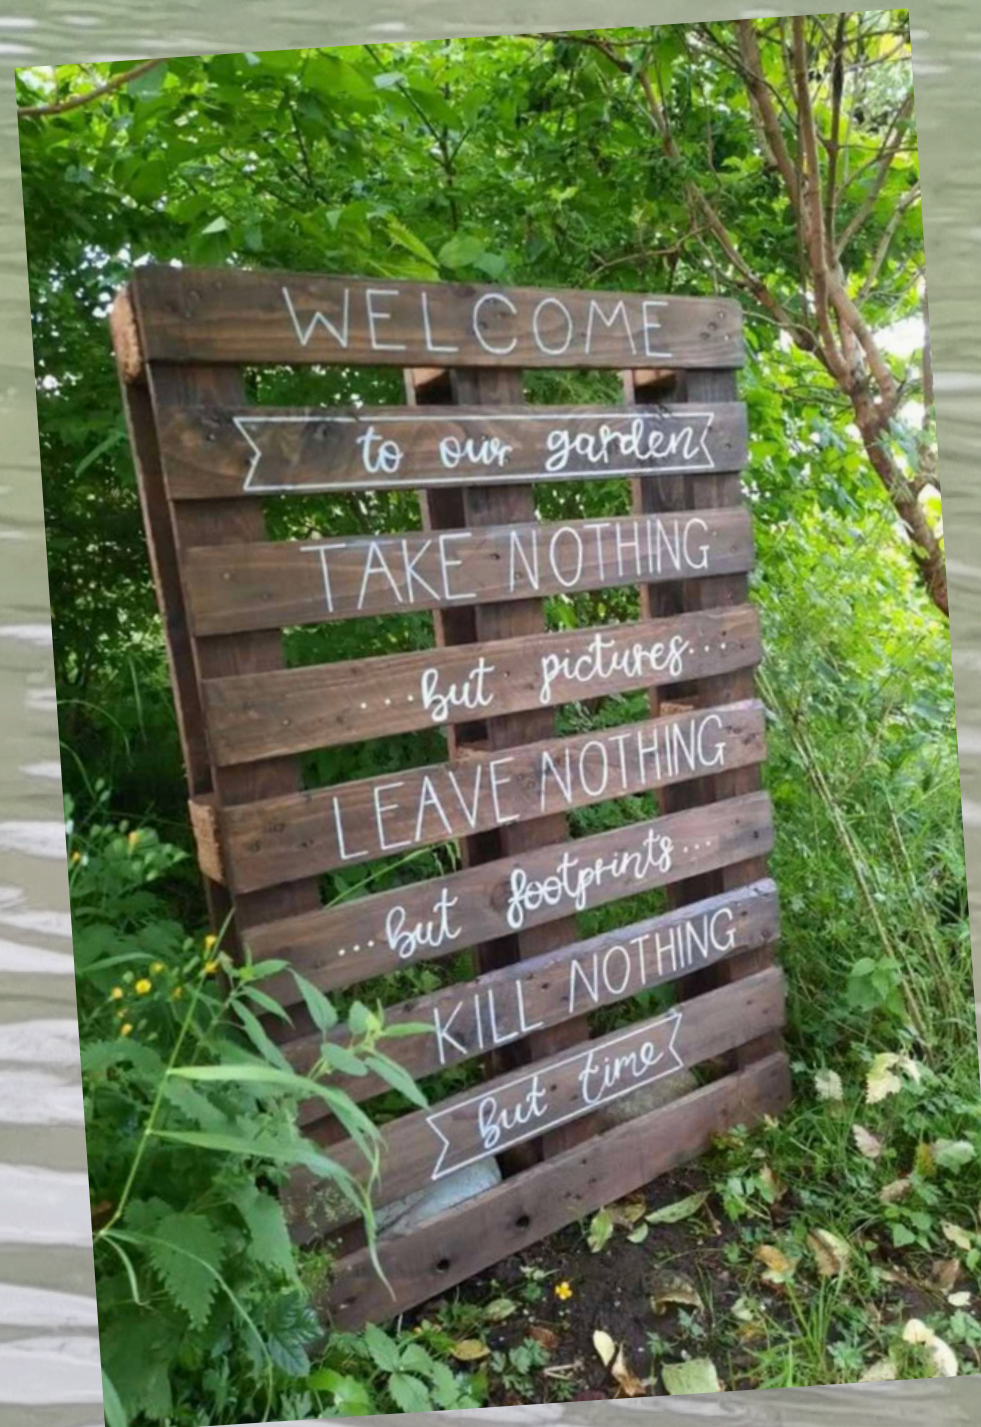 WELCOME
to our garden
TAKE NOTHING
...but pictures...
LEAVE NOTHING
...but footprints...
KILL NOTHING
but time